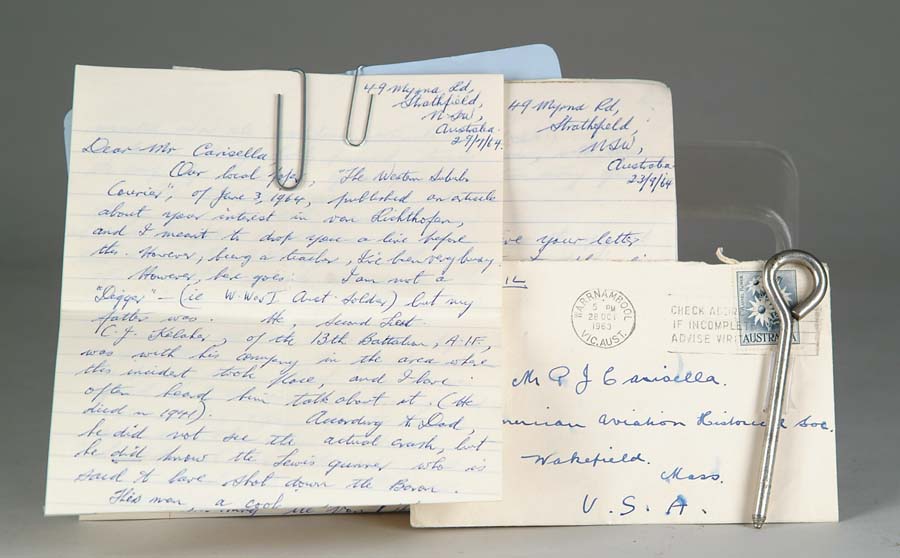 49 Myrna Rd,
Strathfield,
N.S.W,
Australia.
29/7/64.
Dear Mr Carisella,
Our local paper, "The Western Suburbs
Courier", of June 3, 1964, published an article
about your interest in von Richthofen,
and I meant to drop you a line before
this. However, being a teacher, I've been very busy
However, here goes: I am not a
"Digger" — (ie W. War I Aust. Soldier) but my
father was. He, Second Lieut.
C. J. Kelaher, of the 13th Battalion, A.I.F,
was with his company in the area where
this incident took place, and I have
often heard him talk about it. (He
died in 1941).
According to Dad,
he did not see the actual crash, but
he did know the Lewis gunner who is
said to have shot down the Baron.
This man, a cook
49 Myrna Rd,
Strathfield,
N.S.W,
Australia
23/9/64
your letter
WARRNAMBOOL
5 PM
28 OCT
1963
VIC. AUST.
CHECK ADDRE
IF INCOMPLET
ADVISE WRIT
AUSTRALIA
Mr P J Carisella.
merican Aviation Historical Soc.
Wakefield.
Mass.
U. S. A.